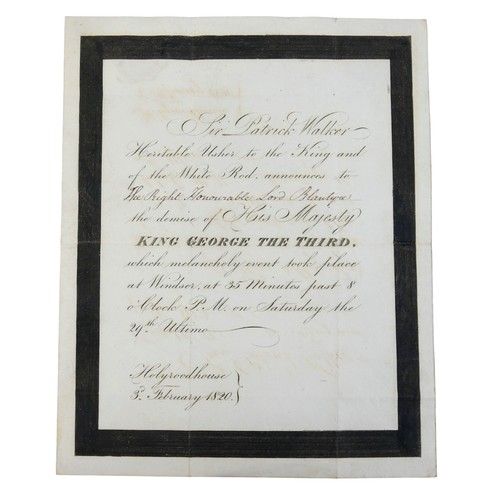 Sir Patrick Walker
Heritable Usher to the King and
of the White Rod, announces to
The Right Honourable Lord Blantyre
the demise of His Majesty
KING GEORGE THE THIRD,
which melancholy event took place
at Windsor, at 35 Minutes past 8
o'Clock P.M. on Saturday the
29th Ultimo
Holyroodhouse
3d February 1820.